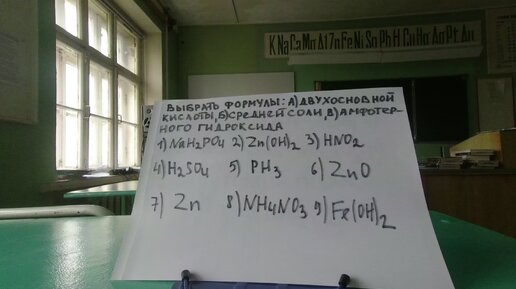 K Na Ca Mg Al Zn Fe Ni Sn Pb H Cu Hg Ag Pt Au
ВЫБРАТЬ ФОРМУЛЫ: А) ДВУХОСНОВНОЙ
КИСЛОТЫ, Б) СРЕДНЕЙ СОЛИ, В) АМФОТЕР-
НОГО ГИДРОКСИДА
1) NaH2PO4 2) Zn(OH)2 3) HNO2
4) H2SO4 5) PH3 6) ZnO
7) Zn 8) NH4NO3 9) Fe(OH)2